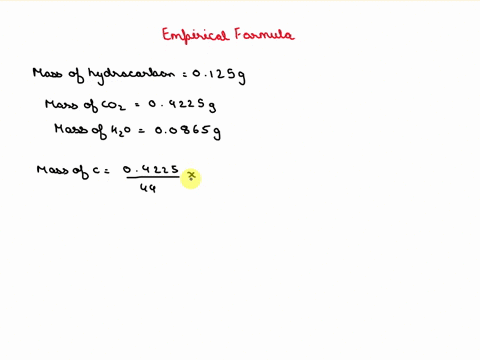 Empirical Formula
Mass of hydrocarbon = 0.125g
Mass of CO2 = 0.4225g
Mass of H2O = 0.0865g
Mass of C = 0.4225 ×
44